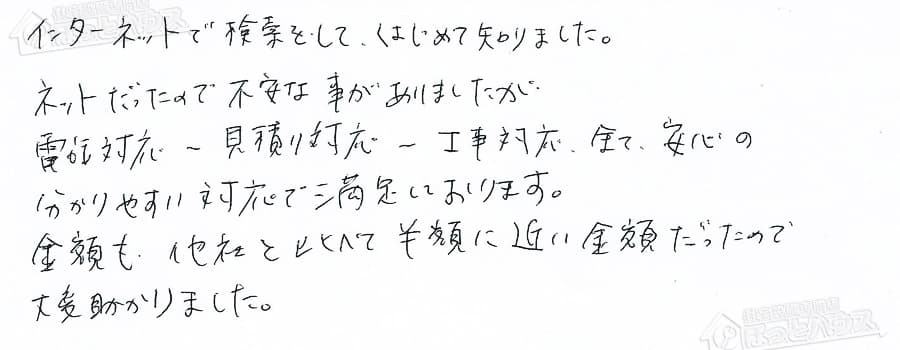 インターネットで検索をして、はじめて知りました。
ネットだったので不安な事がありましたが
電話対応～見積り対応～工事対応、全て、安心の
分かりやすい対応で満足しております。
金額も、他社と比べて半額に近い金額だったので
大変助かりました。